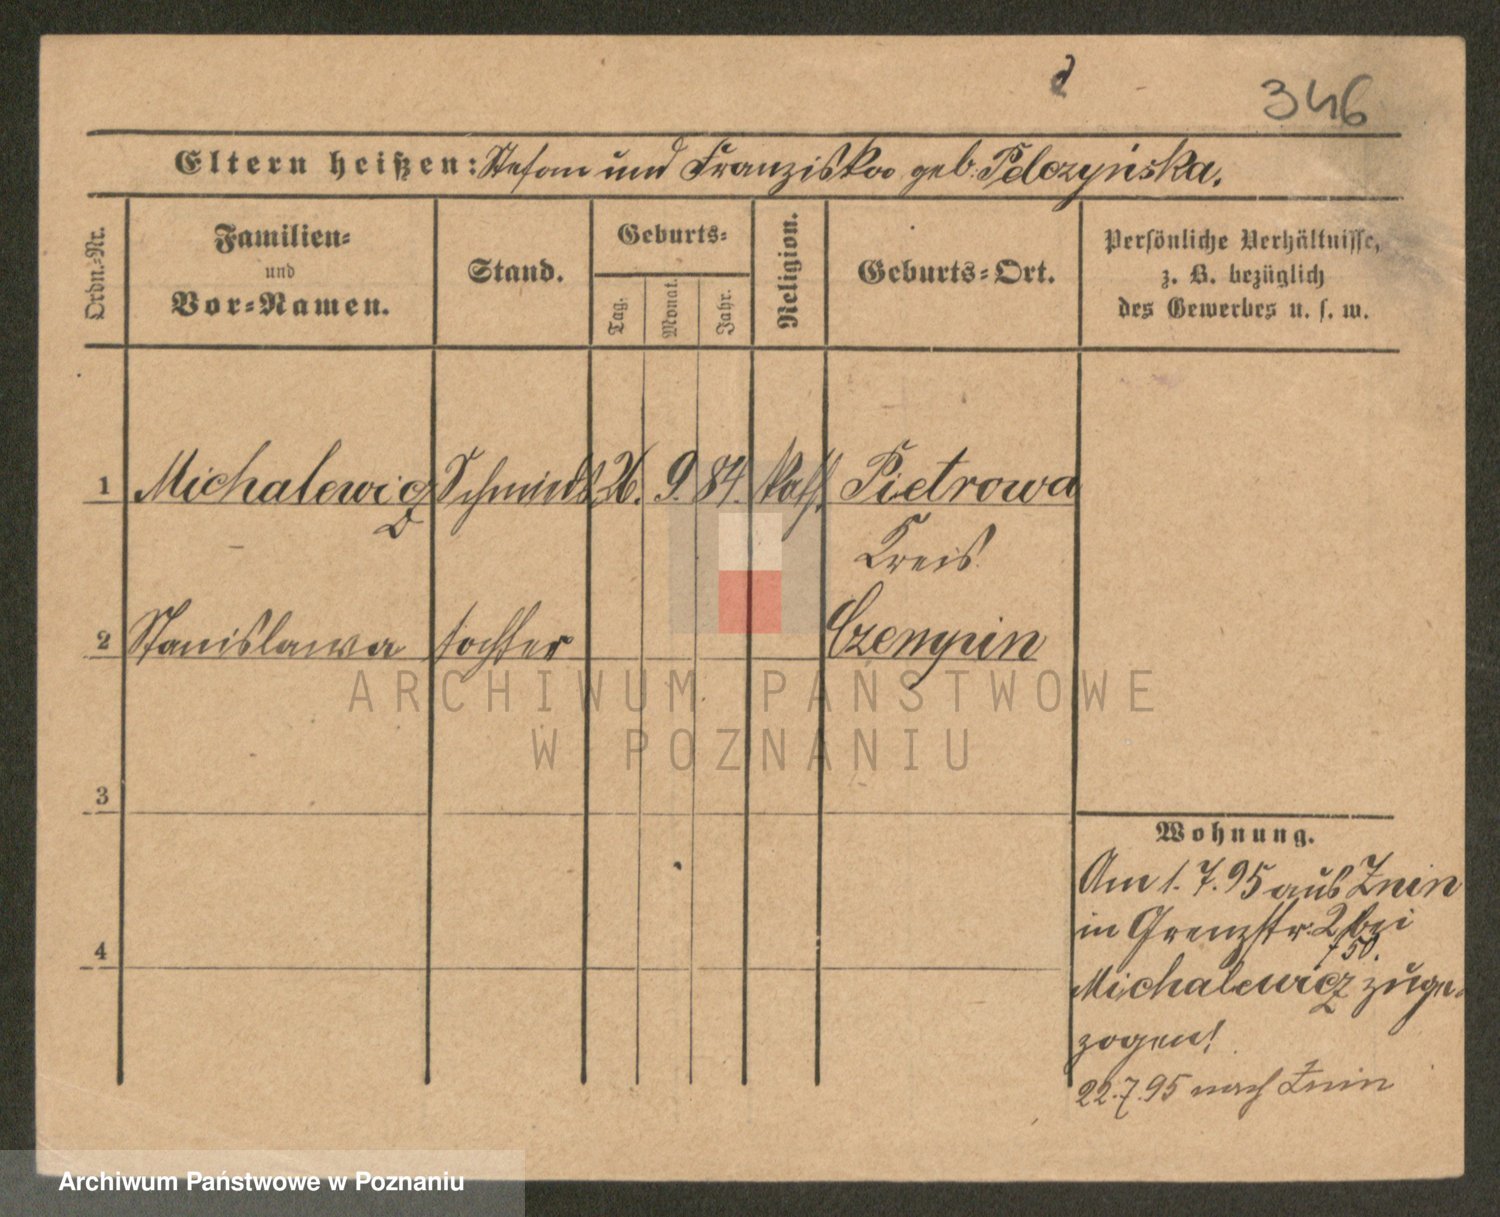 346
Eltern heißen: Stefan und Franziska geb. Pelczyńska.
Ordn.-Nr.
Familien- und Vor-Namen.
Stand.
Geburts-
Tag.
Monat.
Jahr.
Religion.
Geburts-Ort.
Persönliche Verhältnisse,
z. B. bezüglich
des Gewerbes u. s. w.
1 Michalewicz 26. 9. 84. kath. Pietrowo
Kreis
2 Stanislawa tochter Czempin
3
4
Wohnung.
Am 1.7.95 aus Znin
in Grenzstr. 2 bei
Michalewicz zuge-
zogen!
22.7.95 nach Znin
ARCHIWUM PAŃSTWOWE
W POZNANIU
Archiwum Państwowe w Poznaniu